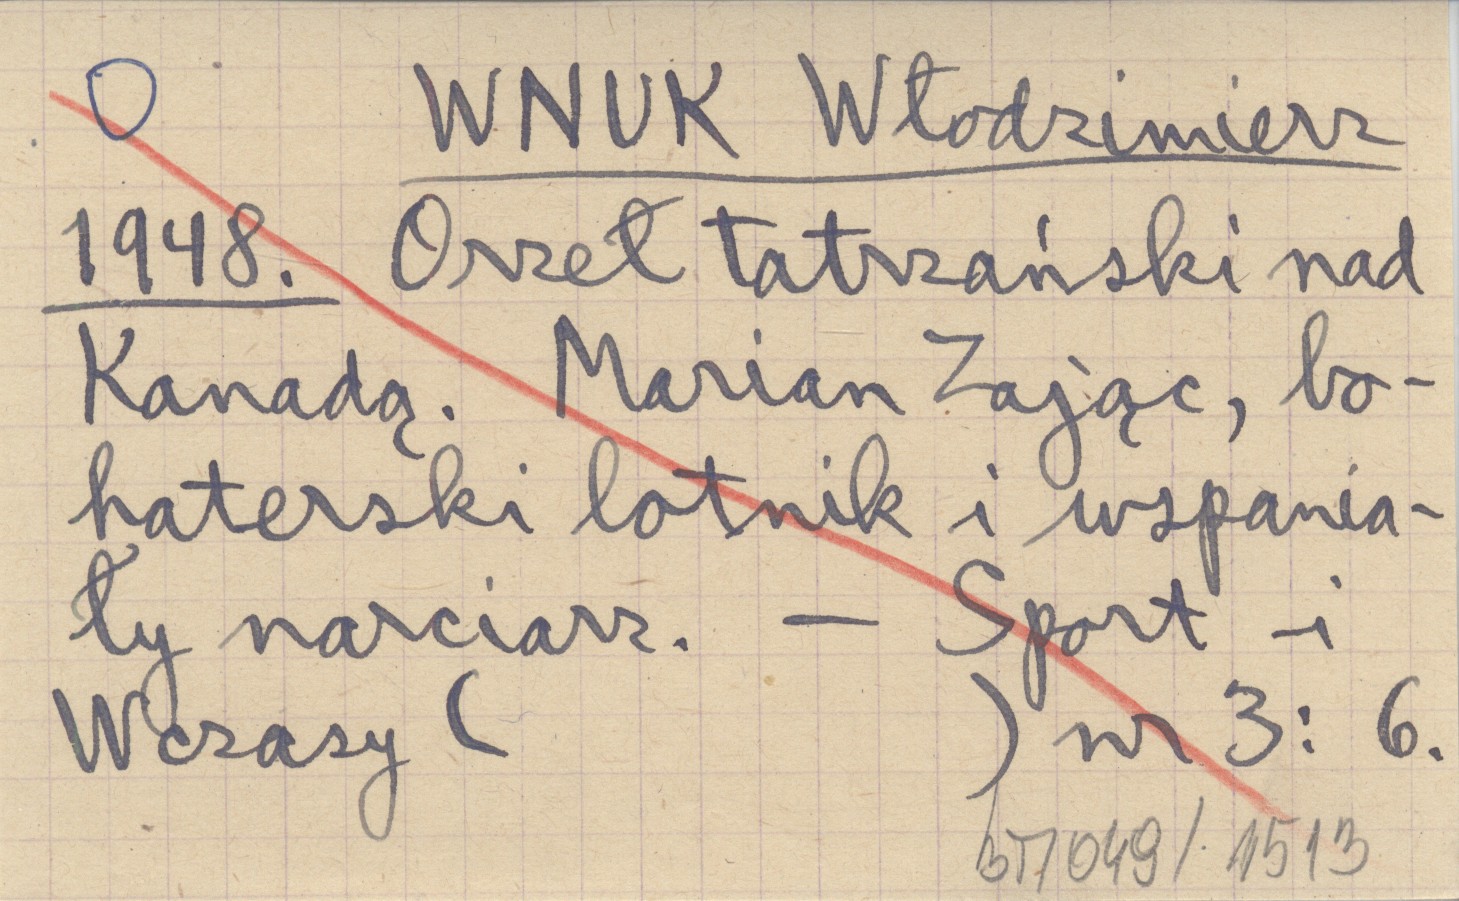 O WNUK Włodzimierz
1948. Orzeł tatrzański nad
Kanadą. Marian Zając, bo-
haterski lotnik i wspania-
ły narciarz. — Sport i
Wczasy ( ) nr 3: 6.
BT/049/1513